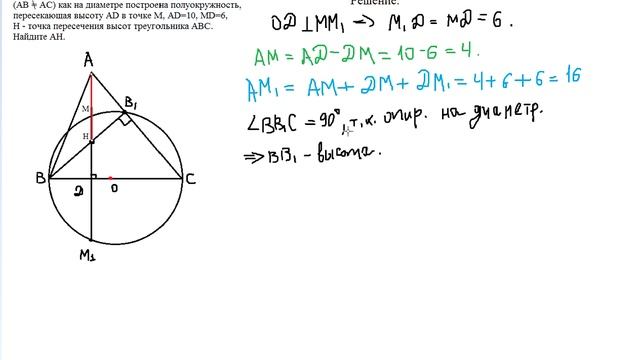 (АВ ≠ АС) как на диаметре построена полуокружность,
пересекающая высоту AD в точке М, AD=10, MD=6,
Н - точка пересечения высот треугольника АВС.
Найдите АН.
Решение:
OD ⊥ MM₁ ⇒ M₁D = MD = 6.
AM = AD − DM = 10 − 6 = 4.
AM₁ = AM + DM + DM₁ = 4 + 6 + 6 = 16
∠BB₁C = 90°, т.к. опир. на диаметр.
⇒ BB₁ – высота.
A
B₁
M
H
B
D
O
C
M₁